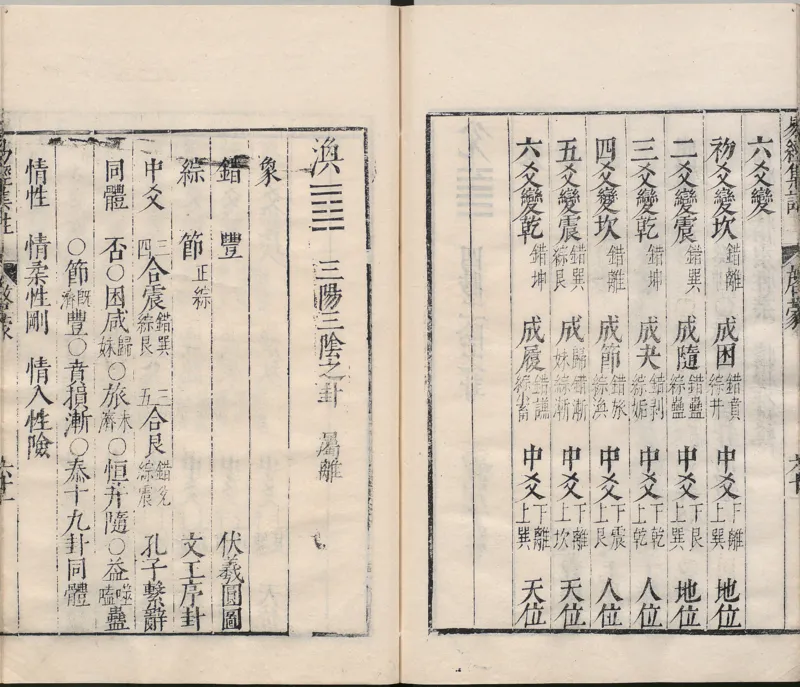 六爻變
初爻變坎 錯離 成困 錯賁綜井 中爻 下離上巽 地位
二爻變震 錯巽綜艮 成隨 錯蠱綜蠱 中爻 下艮上巽 地位
三爻變乾 錯坤 成夬 錯剝綜姤 中爻 下乾上乾 人位
四爻變坎 錯離 成節 錯旅綜渙 中爻 下震上艮 人位
五爻變震 錯巽綜艮 成歸妹 錯漸綜漸 中爻 下離上坎 天位
六爻變乾 錯坤 成履 錯謙綜畜 中爻 下離上巽 天位
渙 ䷺ 三陽三陰之卦 屬離
象
錯 豐 伏羲圓圖
綜 節 正綜 文王序卦
中爻 三四合震 錯巽綜艮 三五合艮 錯兌綜震 孔子繫辭
同體 否○困咸歸妹○旅未濟○恒井隨○益噬嗑蠱
○節既濟豐○賁損漸○泰十九卦同體
情性 情柔性剛 情入性險